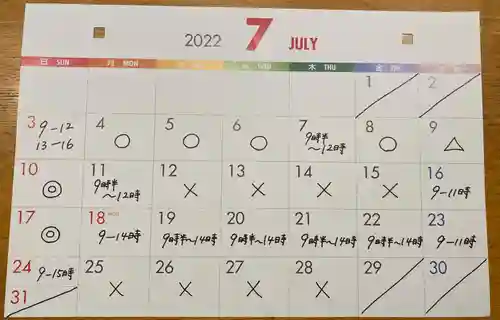 2022 7 JULY
日 SUN 月 MON 火 TUE 水 WED 木 THU 金 FRI 土 SAT
1 2
3 9-12 13-16 4 ○ 5 ○ 6 ○ 7 9時半~12時 8 ○ 9 △
10 ◎ 11 9時半~12時 12 × 13 × 14 × 15 × 16 9-11時
17 ◎ 18 9-14時 19 9時半~14時 20 9時半~14時 21 9時半~14時 22 9時半~14時 23 9-11時
24 9-15時 25 × 26 × 27 × 28 × 29 30
31